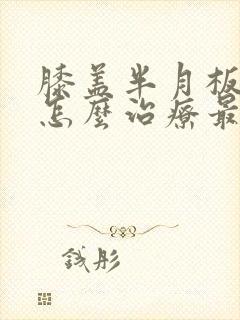 膝盖半月板
怎麽治療最
钱彤